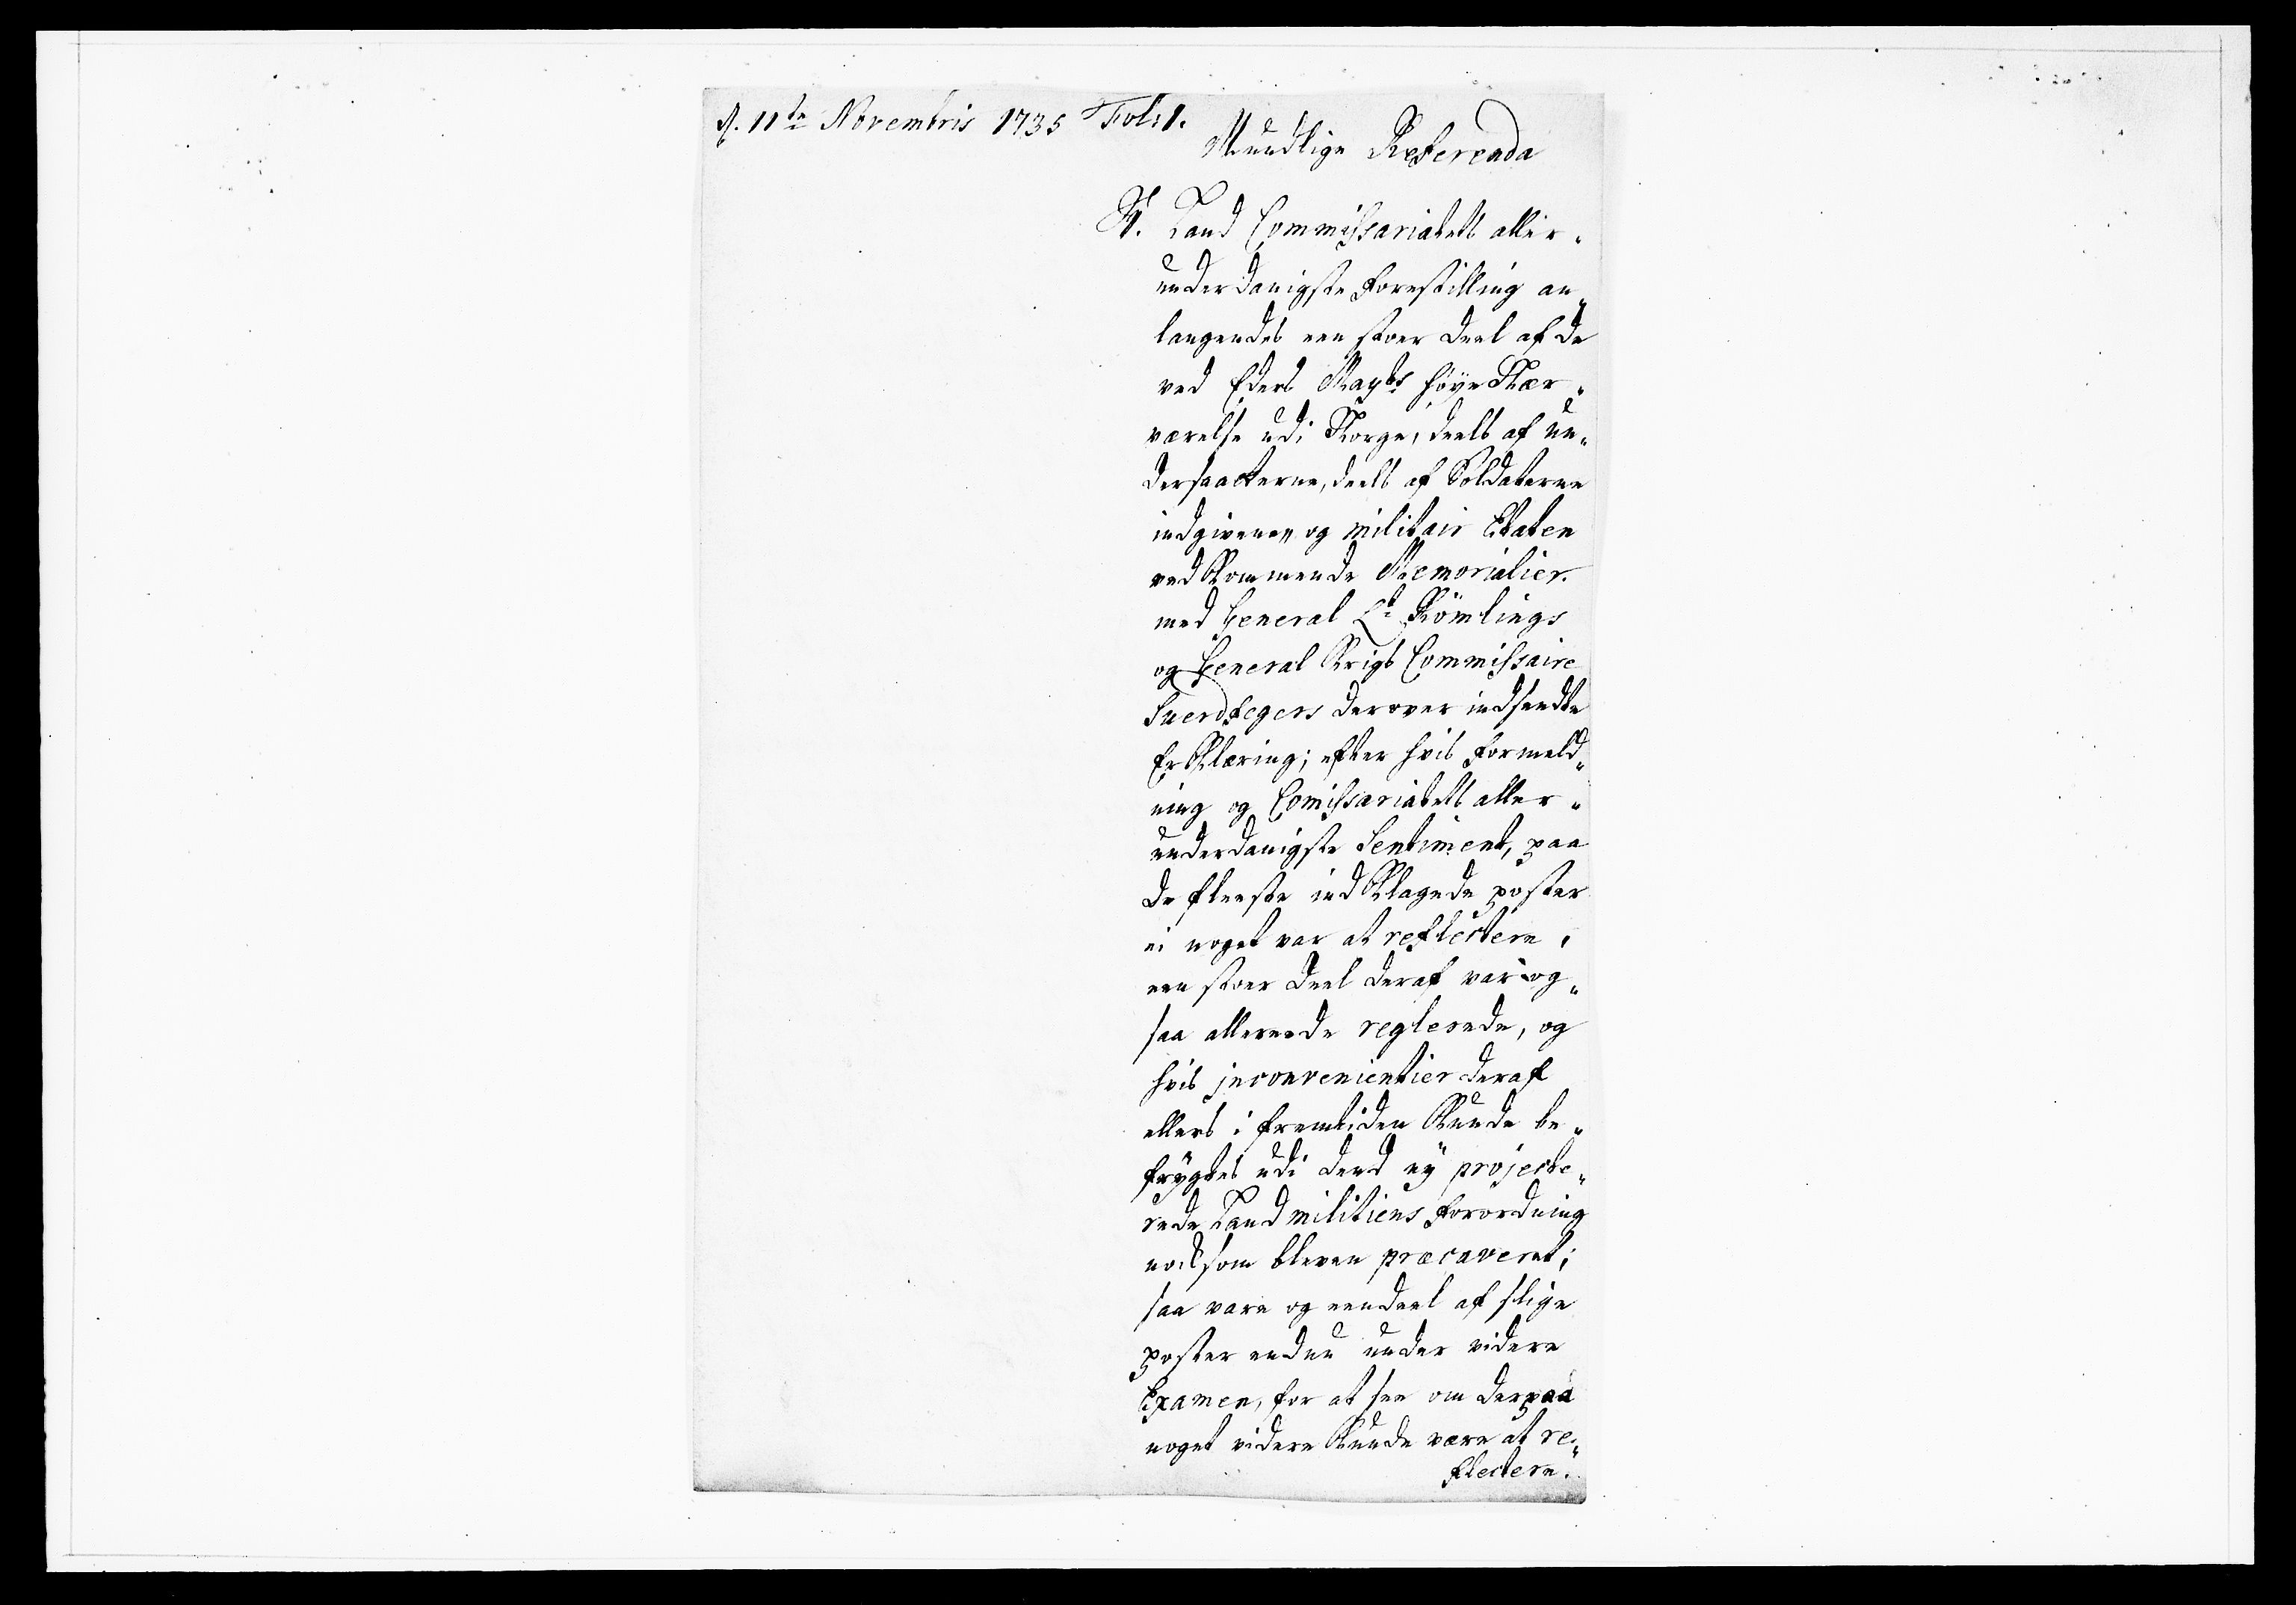 d. 11te Novembris 1735 Fol: 1.
Mundlige Referenda
Land Commissariatets aller-
underdanigste Forestilling an-
langendes een stoer Deel af de
ved Eders Mayts høye Nær-
værelse udi Norge, deels af un-
dersaatterne, deels af Soldaterne
indgivene, og militair Etaten
ved Kommende Memorialier.
med General Lt Römlings
og General Krigs Commissaire
Suerdfegers derover indsendte
Erklæring; efter hvis formeld-
ning og Comissariatets aller-
underdanigste Sentiment, paa
de fleeste ind Klagede poster
ei noget var at reflectere,
een stoer Deel deraf var og-
saa allereede reglerede, og
hvis jnconvenientier deraf
ellers i fremtiden Kunde be-
frygtes udi dend ny projecte-
rede Landmilitiens Forordning
nocksom bleven præcaveret;
saa vare og eendeel af slige
poster endnu under videre
Examen, for at see om derpaa
noget videre Kunde være at re-
flectere.